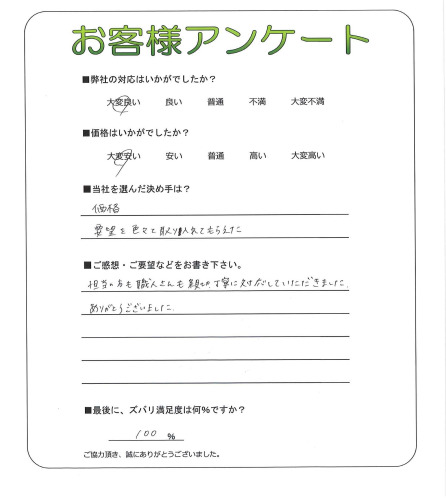 お客様アンケート
■弊社の対応はいかがでしたか？
大変良い 良い 普通 不満 大変不満
■価格はいかがでしたか？
大変安い 安い 普通 高い 大変高い
■当社を選んだ決め手は？
価格
要望を色々と取り入れてもらえた
■ご感想・ご要望などをお書き下さい。
担当の方も職人さんも親切丁寧に対応していただきました。
ありがとうございました。
■最後に、ズバリ満足度は何%ですか？
100 %
ご協力頂き、誠にありがとうございました。